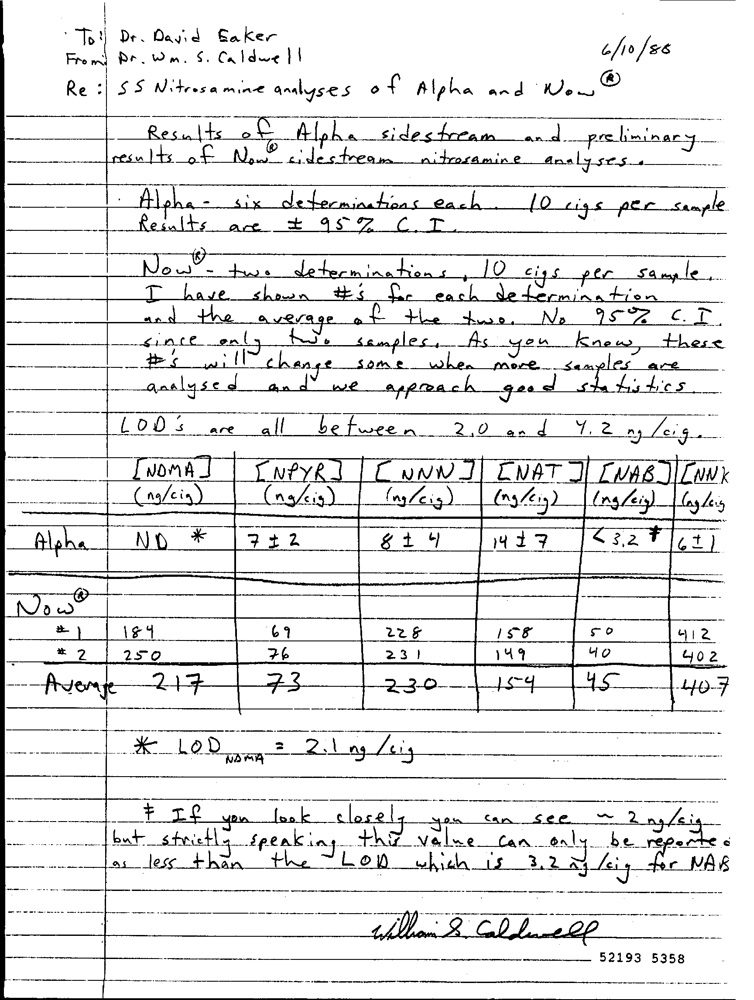 To: Dr. David Eaker
From: Dr. Wm. S. Caldwell 6/10/88
Re: SS Nitrosamine analyses of Alpha and Now®
Results of Alpha sidestream and preliminary
results of Now® sidestream nitrosamine analyses.
Alpha - six determinations each. 10 cigs per sample
Results are ± 95% C.I.
Now® - two determinations, 10 cigs per sample.
I have shown #'s for each determination
and the average of the two. No 95% C.I.
since only two samples. As you know, these
#'s will change some when more samples are
analysed and we approach good statistics.
LOD's are all between 2.0 and 4.2 ng/cig.
[NDMA] [NPYR] [NNN] [NAT] [NAB] [NNK
(ng/cig) (ng/cig) (ng/cig) (ng/cig) (ng/cig) (ng/cig
Alpha ND * 7 ± 2 8 ± 4 14 ± 7 < 3.2 ‡ 6 ± 1
Now®
#1 184 69 228 158 50 412
#2 250 76 231 149 40 402
Average 217 73 230 154 45 407
* LOD NDMA = 2.1 ng/cig
‡ If you look closely you can see ~ 2 ng/cig
but strictly speaking this value can only be reported
as less than the LOD which is 3.2 ng/cig for NAB
William S. Caldwell
52193 5358